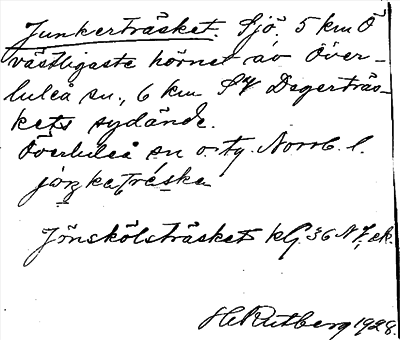 Junkerträsket. Sjö. 5 km Ö
västligaste hörnet av Över-
luleå sn., 6 km SV Degerträs-
kets sydände.
Överluleå sn o. tg. Norrb. l.
jòn̥katrä́ska
Jönskölsträsket kG 36 NV, ek.
H. Rutberg 1928.